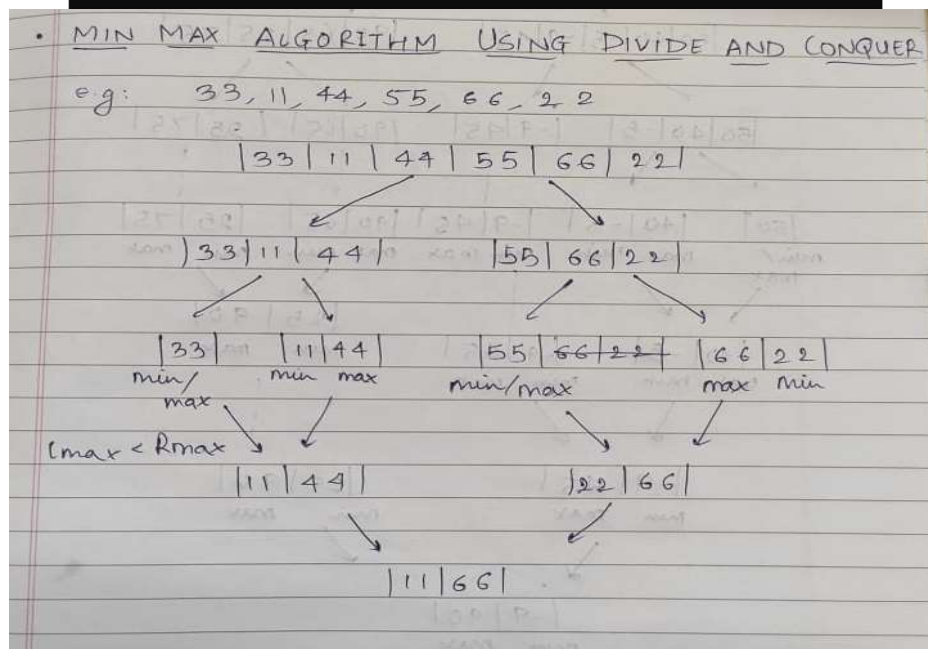 • MIN MAX ALGORITHM USING DIVIDE AND CONQUER
e.g: 33, 11, 44, 55, 66, 22
|33|11|44|55|66|22|
|33|11|44| |55|66|22|
|33| |11|44| |55|66|22| |66|22|
min/max min max min/max max min
Lmax < Rmax
|11|44| |22|66|
|11|66|